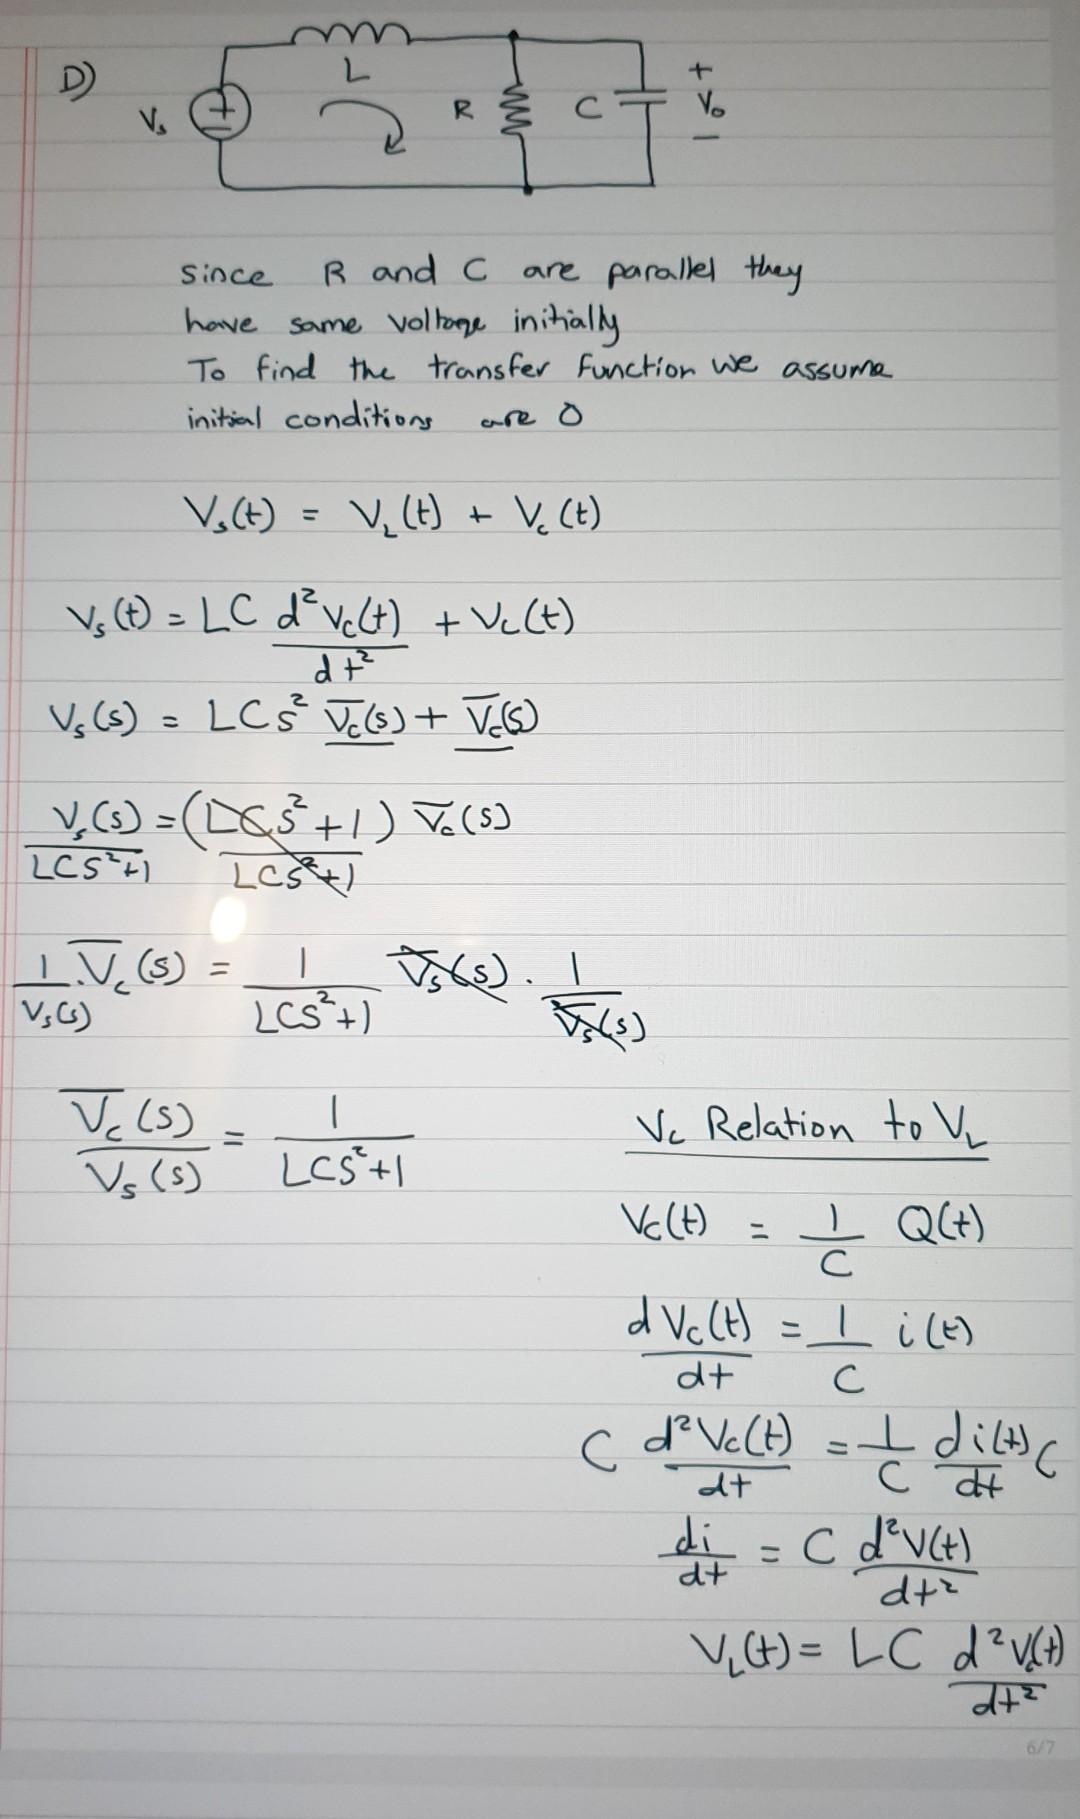 D)
L
Vs
+
−
R
C
+
Vo
−
since R and C are parallel they
have same voltage initially
To find the transfer function we assume
initial conditions are 0
Vs(t) = VL(t) + Vc(t)
Vs(t) = LC d²Vc(t)/dt² + Vc(t)
Vs(s) = LCs² V̅c(s) + V̅c(s)
Vs(s)/LCS²+1 = (LCS²+1)/LCS²+1 V̅c(s)
1/Vs(s) · V̅c(s) = 1/LCS²+1 V̅s(s) · 1/V̅s(s)
V̅c(s)/Vs(s) = 1/LCS²+1
Vc Relation to VL
Vc(t) = 1/C Q(t)
dVc(t)/dt = 1/C i(t)
C d²Vc(t)/dt = 1/C di(t)/dt C
di/dt = C d²V(t)/dt²
VL(t) = LC d²Vc(t)/dt²
6/7